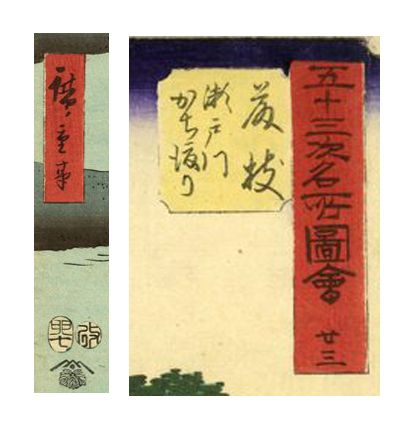 五十三次名所圖會 廿三
藤枝
瀬戸川
かち渡り
廣重筆
改
卯七